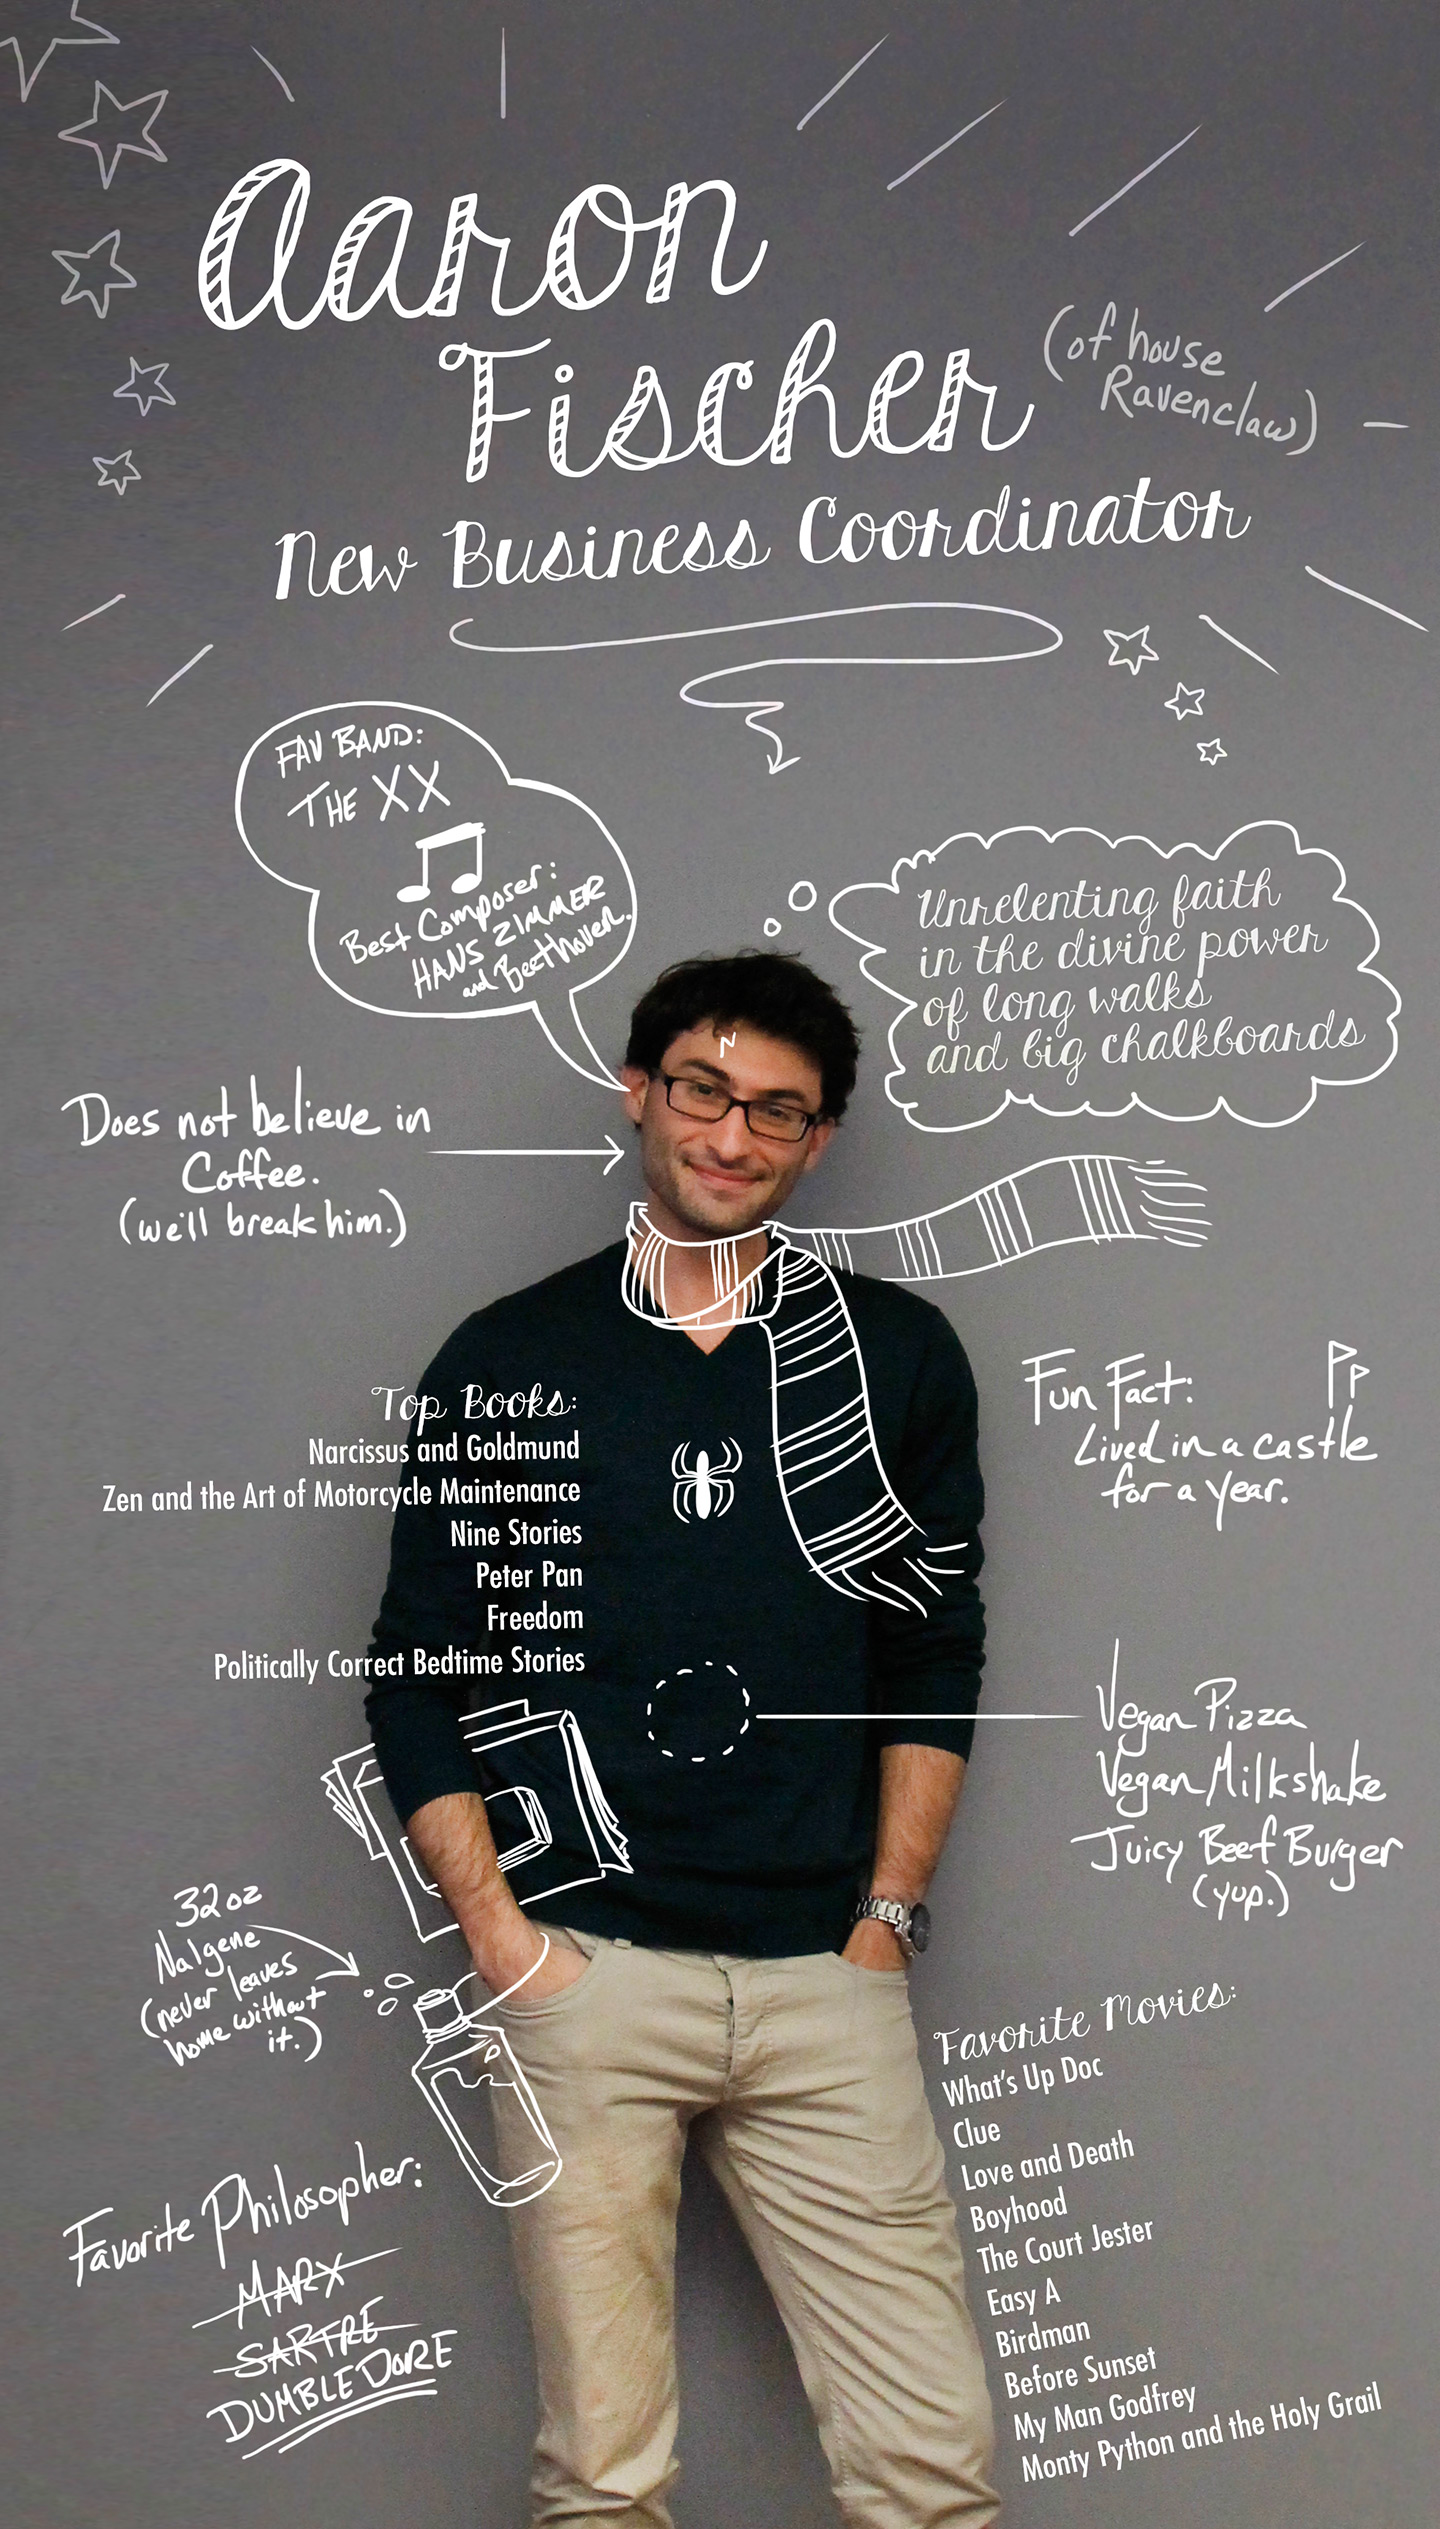 Aaron
Fischer
(of house
Ravenclaw)
New Business Coordinator
FAV BAND:
THE XX
Best Composer:
HANS ZIMMER
and Beethoven.
Unrelenting faith
in the divine power
of long walks
and big chalkboards
Does not believe in
Coffee.
(we'll break him.)
Top Books:
Narcissus and Goldmund
Zen and the Art of Motorcycle Maintenance
Nine Stories
Peter Pan
Freedom
Politically Correct Bedtime Stories
Fun Fact:
Lived in a castle
for a year.
Vegan Pizza
Vegan Milkshake
Juicy Beef Burger
(yup.)
32 oz
Nalgene
(never leaves
home without
it.)
Favorite Philosopher:
MARX
SARTRE
DUMBLEDORE
Favorite Movies:
What's Up Doc
Clue
Love and Death
Boyhood
The Court Jester
Easy A
Birdman
Before Sunset
My Man Godfrey
Monty Python and the Holy Grail